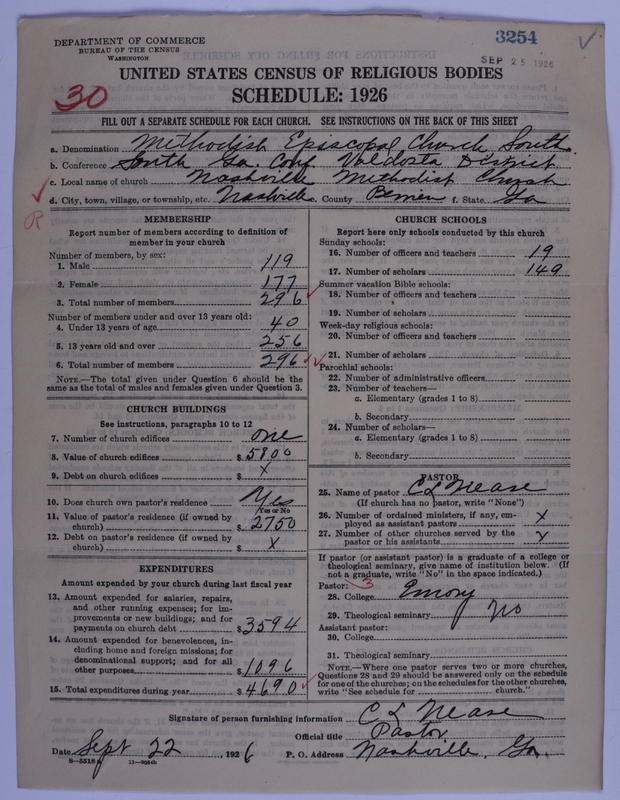 DEPARTMENT OF COMMERCE
BUREAU OF THE CENSUS
WASHINGTON
3254
SEP 25 1926
UNITED STATES CENSUS OF RELIGIOUS BODIES
30
SCHEDULE: 1926
FILL OUT A SEPARATE SCHEDULE FOR EACH CHURCH. SEE INSTRUCTIONS ON THE BACK OF THIS SHEET
a. Denomination Methodist Episcopal Church South.
b. Conference South Ga. Conf Valdosta District
c. Local name of church Nashville Methodist Church
d. City, town, village, or township, etc. Nashville e. County f. State Ga
R
MEMBERSHIP
Report number of members according to definition of
member in your church
Number of members, by sex:
1. Male 119
2. Female 177
3. Total number of members 296
Number of members under and over 13 years old:
4. Under 13 years of age 40
5. 13 years old and over 256
6. Total number of members 296
NOTE.—The total given under Question 6 should be the
same as the total of males and females given under Question 3.
CHURCH BUILDINGS
See instructions, paragraphs 10 to 12
7. Number of church edifices one
8. Value of church edifices $ 5800
9. Debt on church edifices $ X
10. Does church own pastor's residence Yes
Yes or No
11. Value of pastor's residence (if owned by
church) $ 2750
12. Debt on pastor's residence (if owned by
church) $ X
EXPENDITURES
Amount expended by your church during last fiscal year
13. Amount expended for salaries, repairs,
and other running expenses; for im-
provements or new buildings; and for
payments on church debt $ 3594
14. Amount expended for benevolences, in-
cluding home and foreign missions; for
denominational support; and for all
other purposes $ 1096
15. Total expenditures during year $ 4690
CHURCH SCHOOLS
Report here only schools conducted by this church
Sunday schools:
16. Number of officers and teachers 19
17. Number of scholars 149
Summer vacation Bible schools:
18. Number of officers and teachers
19. Number of scholars
Week-day religious schools:
20. Number of officers and teachers
21. Number of scholars
Parochial schools:
22. Number of administrative officers
23. Number of teachers—
a. Elementary (grades 1 to 8)
b. Secondary
24. Number of scholars—
a. Elementary (grades 1 to 8)
b. Secondary
PASTOR
25. Name of pastor C L Nease
(If church has no pastor, write "None")
26. Number of ordained ministers, if any, em-
ployed as assistant pastors X
27. Number of other churches served by the
pastor or his assistants X
If pastor (or assistant pastor) is a graduate of a college or
theological seminary, give name of institution below. (If
not a graduate, write "No" in the space indicated.)
Pastor: 3
28. College Emory
29. Theological seminary No
Assistant pastor:
30. College
31. Theological seminary
NOTE.—Where one pastor serves two or more churches,
Questions 28 and 29 should be answered only on the schedule
for one of the churches; on the schedules for the other churches,
write "See schedule for church."
Signature of person furnishing information C L Nease
Official title Pastor
Date Sept 22, 1926 P. O. Address Nashville, Ga.
8-5518